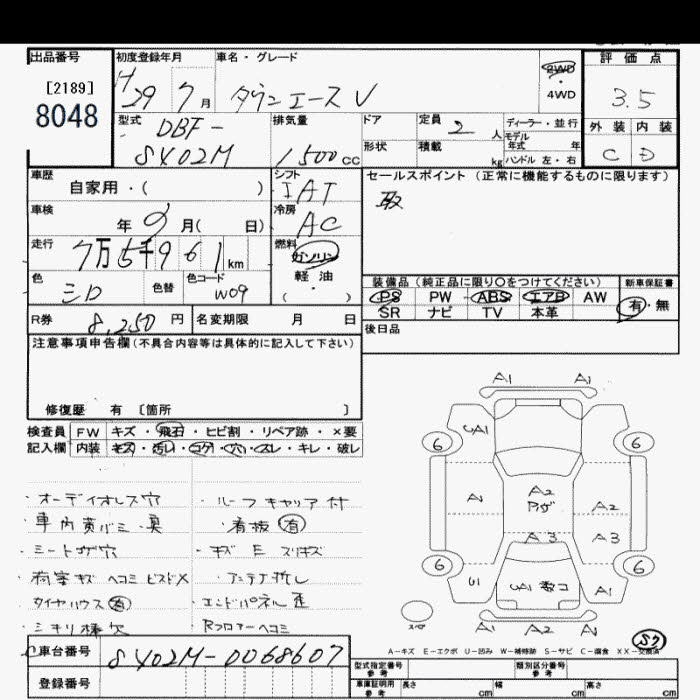 出品番号
[2189]
8048
初度登録年月
H29 7月
車名・グレード
タウンエースV
2WD
・
4WD
評価点
3.5
外装 内装
C D
型式
DBF-
S402M
排気量
1500cc
ドア
形状
定員 2人
積載 kg
ディーラー・並行
モデル
年式 年
ハンドル 左・右
車歴
自家用・( )
シフト
IAT
セールスポイント (正常に機能するものに限ります)
取
車検
年 9月( 日)
冷房
AC
走行
7万5千961km
燃料
ガソリン
軽・油
( )
色
色替
色コード
W09
装備品 (純正品に限り○をつけてください)
PS PW ABS エアB AW
SR ナビ TV 本革
新車保証書
有・無
R券 8,250円
名変期限 月 日
後日品
注意事項申告欄(不具合内容等は具体的に記入して下さい)
修復歴 有 〔箇所 〕
検査員 FW キズ・飛石・ヒビ割・リペア跡・×要
記入欄 内装 キズ・汚レ・コゲ・穴・スレ・キレ・破レ
・オーディオレス穴
・車内黄バミ・臭
・シートコゲ穴
・荷室キズ ヘコミ ビス穴
タイヤハウス
・シキリ棒欠
・ルーフキャリア付
・看板(有)
・キズ E スリキズ
・アンテナ
・エンドパネル歪
・Rフロアーヘコミ
A1 A1
UA1
6 6
A A2 A2
A3 A3
6 6
U1 UA1 数コ A1
A1 A2 A1
スペア
S7
A-キズ E-エクボ U-凹み W-補修跡 S-サビ C-腐食 XX-交換済
車台番号
S402M-0068607
登録番号
型式指定番号
参考
類別区分番号
参考
車庫証明用
参考
長さ cm 幅 cm 高さ cm